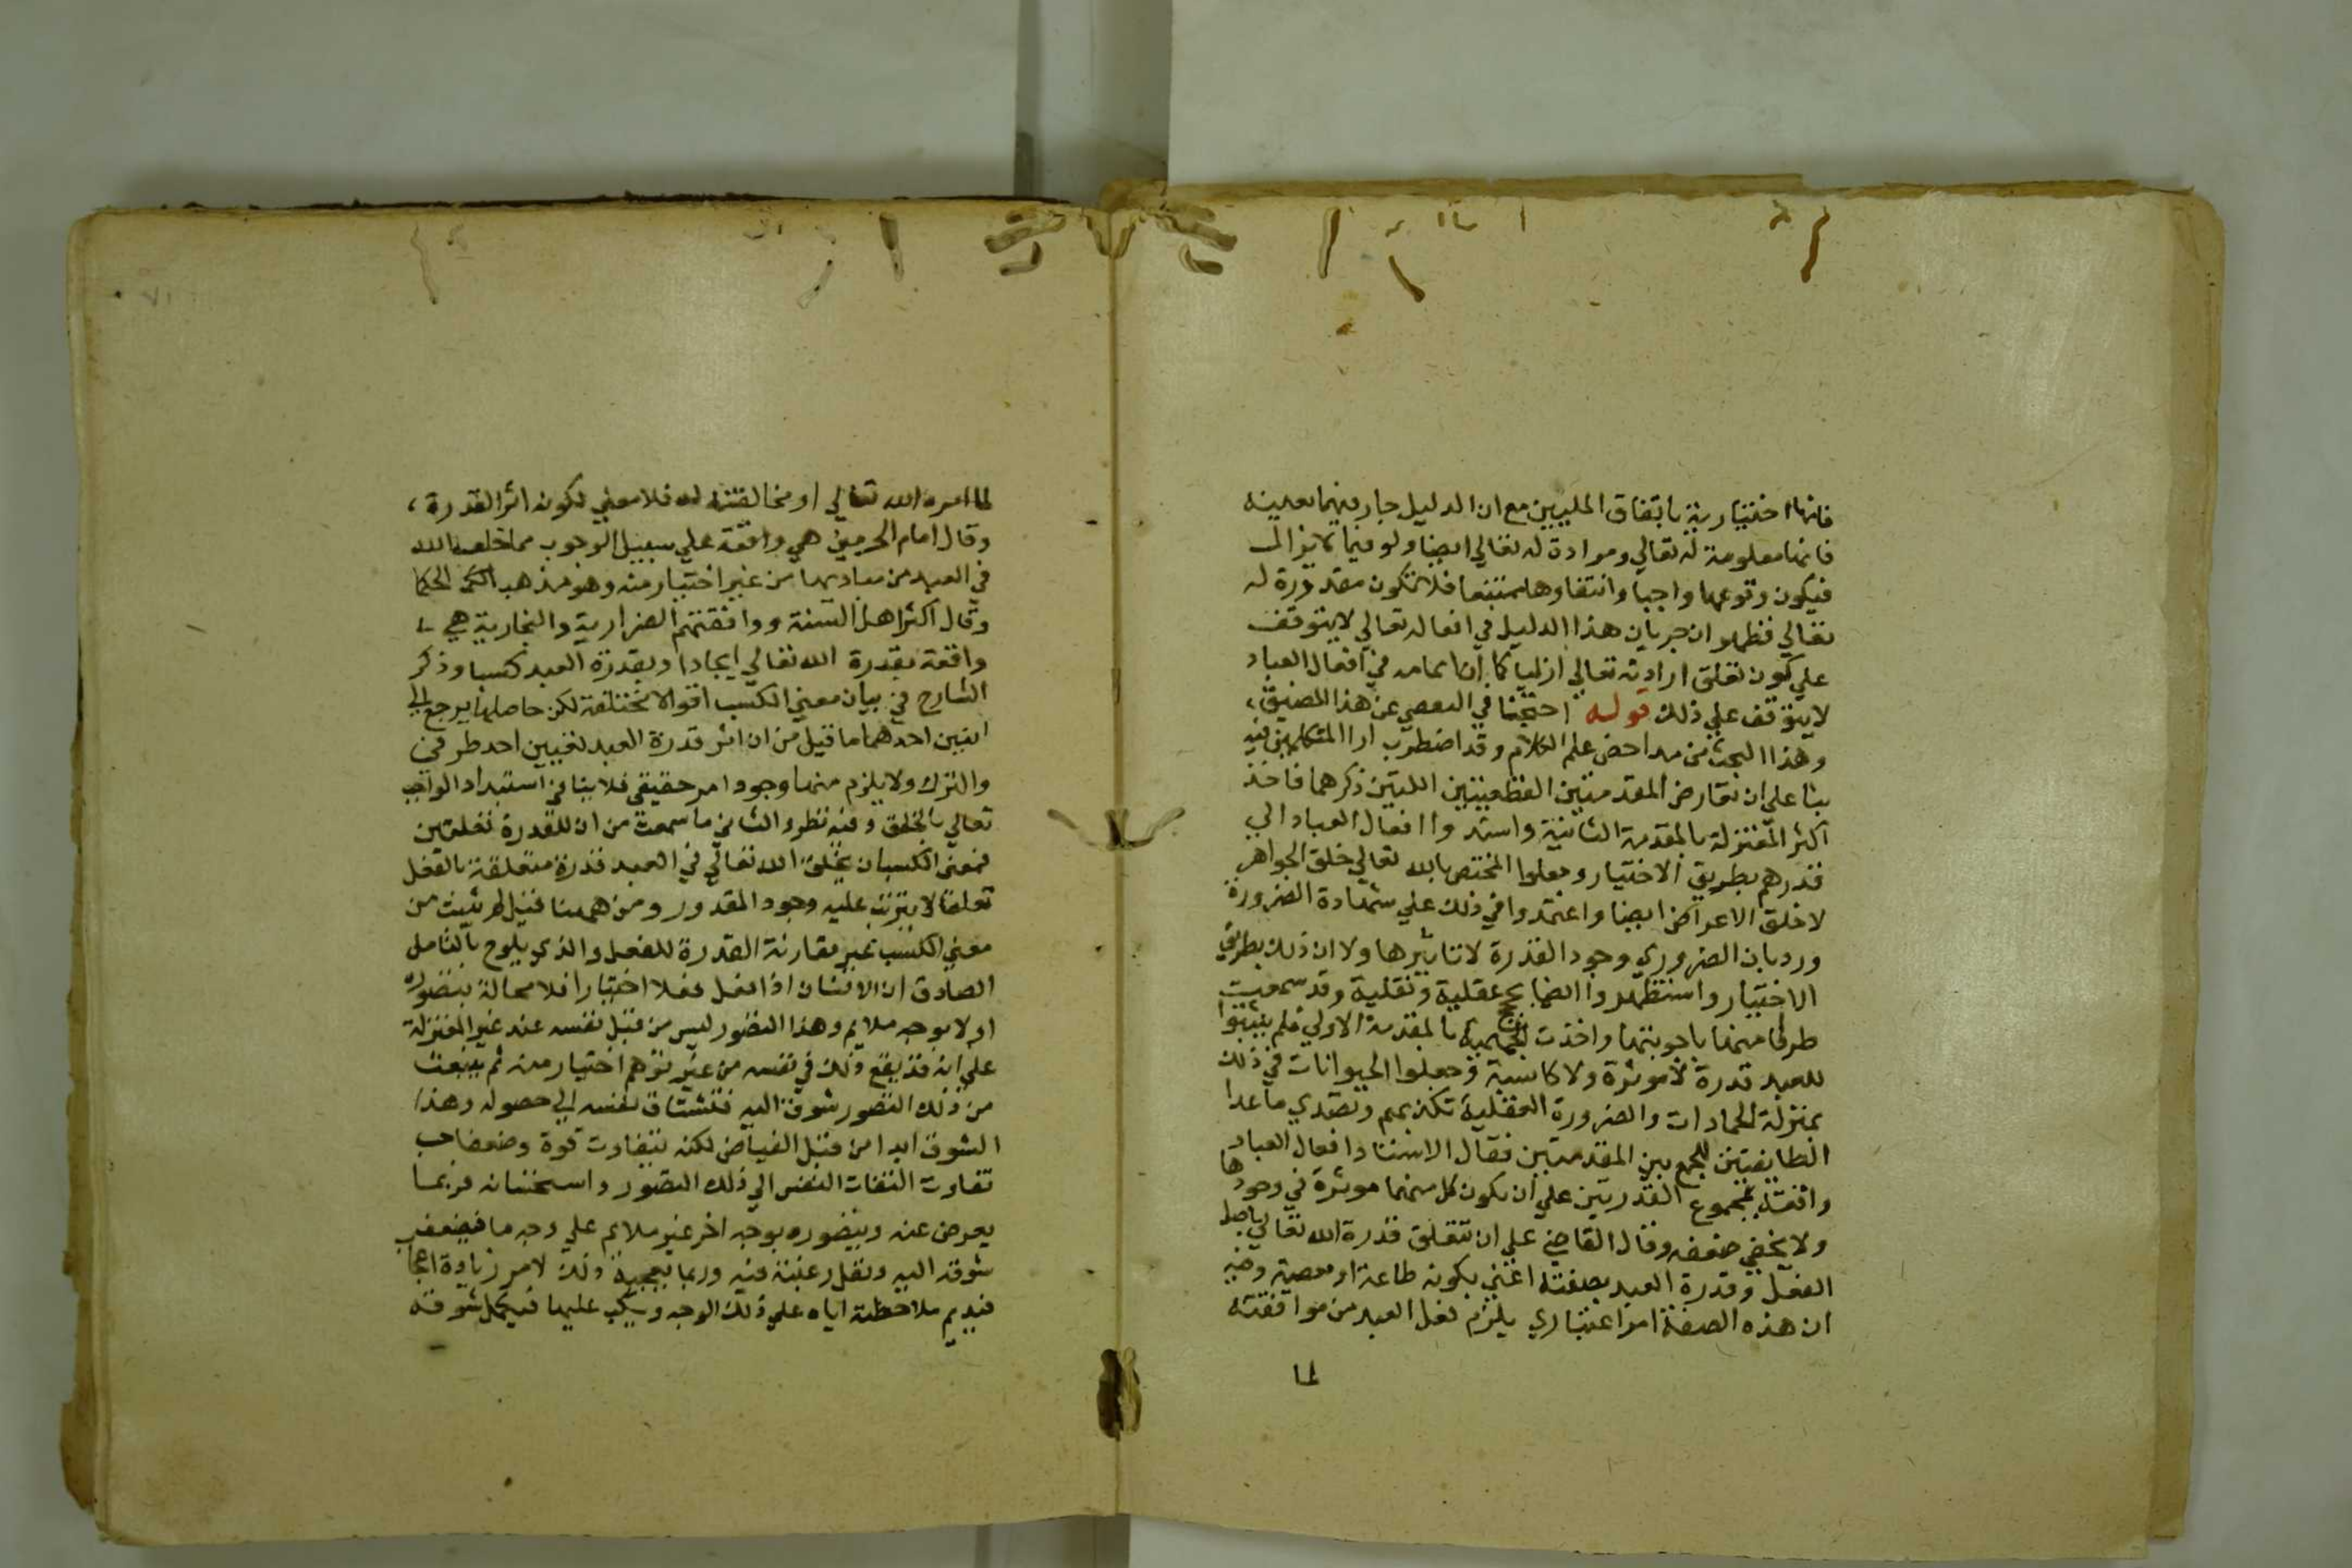 فانها اختيارية باتفاق المليين مع ان الدليل جار فيها بعينه
فانها معلومة له تعالي ومرادة له تعالي ايضا ولو فيما لا يزال
فيكون وقوعها واجبا وانتفاوها ممتنعا فلا تكون مقدورة له
تعالي فظهر ان جريان هذا الدليل في افعاله تعالي لا يتوقف
علي كون تعلق ارادته تعالي ازليا كما ان تمامه في افعال العباد
لا يتوقف علي ذلك قوله احتجنا في التفصي عن هذا المضيق،
وهذا البحث من مداحض علم الكلام وقد اضطرب ارا المتكلمين فيه
بنا علي ان تعارض المقدمتين القطعيتين اللتين ذكرهما فاخذ
اكثر المعتزلة بالمقدمة الثانية واسندوا افعال العباد الي
قدرهم بطريق الاختيار وجعلوا المختص بالله تعالي خلق الجواهر
لا خلق الاعراض ايضا واعتمدوا في ذلك علي شهادة الضرورة
ورد بان الضروري وجود القدرة لا تاثيرها ولا ان ذلك بطريق
الاختيار واستظهروا ايضا بحجج عقلية ونقلية وقد سمعت
طرفا منها باجوبتها واخذت الجهمية بالمقدمة الاولي فلم يثبتوا
للعبد قدرة لا موثرة ولا كاسبة وجعلوا الحيوانات في ذلك
بمنزلة الجمادات والضرورة العقلية تكذبهم وتصدي ما عدا
الطايفتين للجمع بين المقدمتين فقال الاستاد افعال العباد
واقعة بمجموع القدرتين علي ان يكون كل منهما موثرة في وجودها
ولا يخفي ضعفه وقال القاضي علي ان تتعلق قدرة الله تعالي باصل
الفعل وقدرة العبد بصفته اعني بكونه طاعة او معصية وفيه
ان هذه الصفة امر اعتباري يلزم فعل العبد من موافقته
لما
لما امره الله تعالي او مخالفته له فلا معني لكونه اثر القدرة،
وقال امام الحرمين هي واقعة علي سبيل الوجوب مما خلقه الله
في العبد من مباديها من غير اختيار منه وهو مذهب الحكما
وقال اكثر اهل السنة ووافقتهم الضرارية والنجارية هي
واقعة بقدرة الله تعالي ايجادا وبقدرة العبد كسبا وذكر
الشارح في بيان معني الكسب اقوالا مختلفة لكن حاصلها يرجع الي
اثنين احدهما ما قيل من ان اثر قدرة العبد تعيين احد طرفي
والترك ولا يلزم منها وجود امر حقيقي فلا ينافي استبداد الواجب
تعالي بالخلق وفيه نظر والثاني ما سمعت من ان للقدرة تعلقين
فمعني الكسب ان يخلق الله تعالي في العبد قدرة متعلقة بالفعل
تعلقا لا يترتب عليه وجود المقدور ومن ههنا قيل لم يثبت من
معني الكسب غير مقارنة القدرة للفعل والذي يلوح بالتامل
الصادق ان الانسان اذا فعل فعلا اختيارا فلا محالة يتصوره
اولا بوجه ملايم وهذا التصور ليس من قبل نفسه عند غير المعتزلة
علي انه قد يقع ذلك في نفسه من غير توهم اختيار منه ثم ينبعث
من ذلك التصور شوق اليه فتشتاق نفسه الي حصوله وهذا
الشوق ابدا من قبل الفياض لكنه يتفاوت قوة وضعفا حسب
تفاوت التفات النفس الي ذلك التصور واستحسانه فربما
يعرض عنه ويتصوره بوجه اخر غير ملايم علي وجه ما فيضعف
شوقه اليه وتقل رغبته فيه وربما يعجبه ذلك لامر زيادة اعجا
فيديم ملاحظته اياه علي ذلك الوجه ويكب عليها فيكمل شوقه